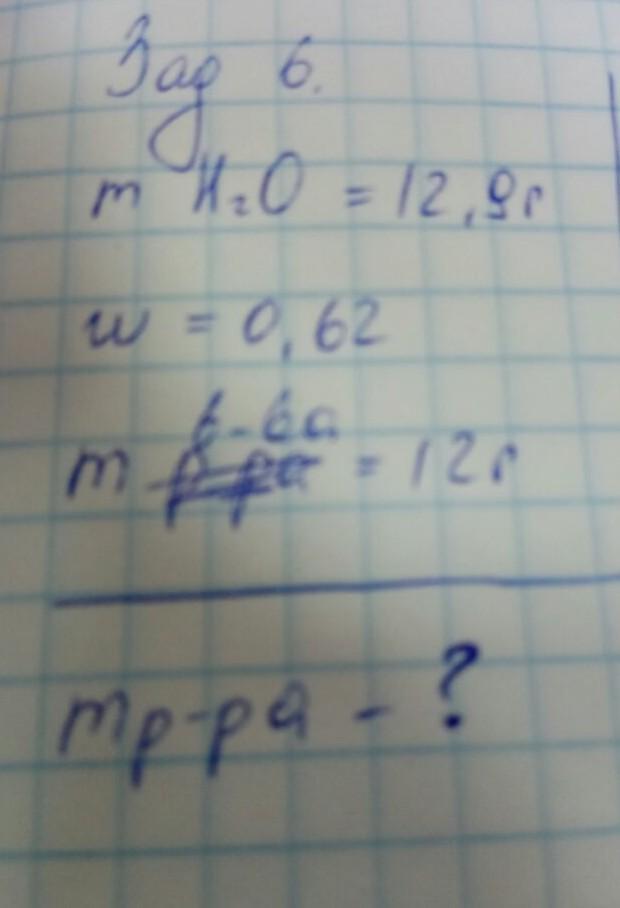 Зад 6.
m H₂O = 12,9г
w = 0,62
в-ва
m р-ра = 12г
mр-ра - ?